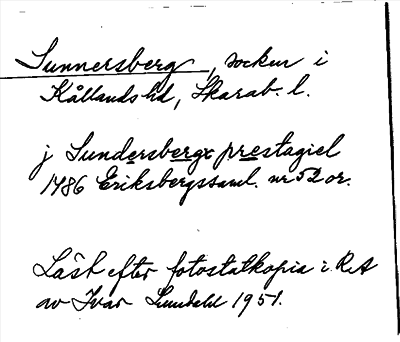 Sunnersberg, socken i
Kållands hd, Skarab. l.
j Sundersbergx prestagiel
1486 Eriksbergssaml. nr 52 or.
Läst efter fotostatkopia i RA
av Ivar Lundahl 1951.